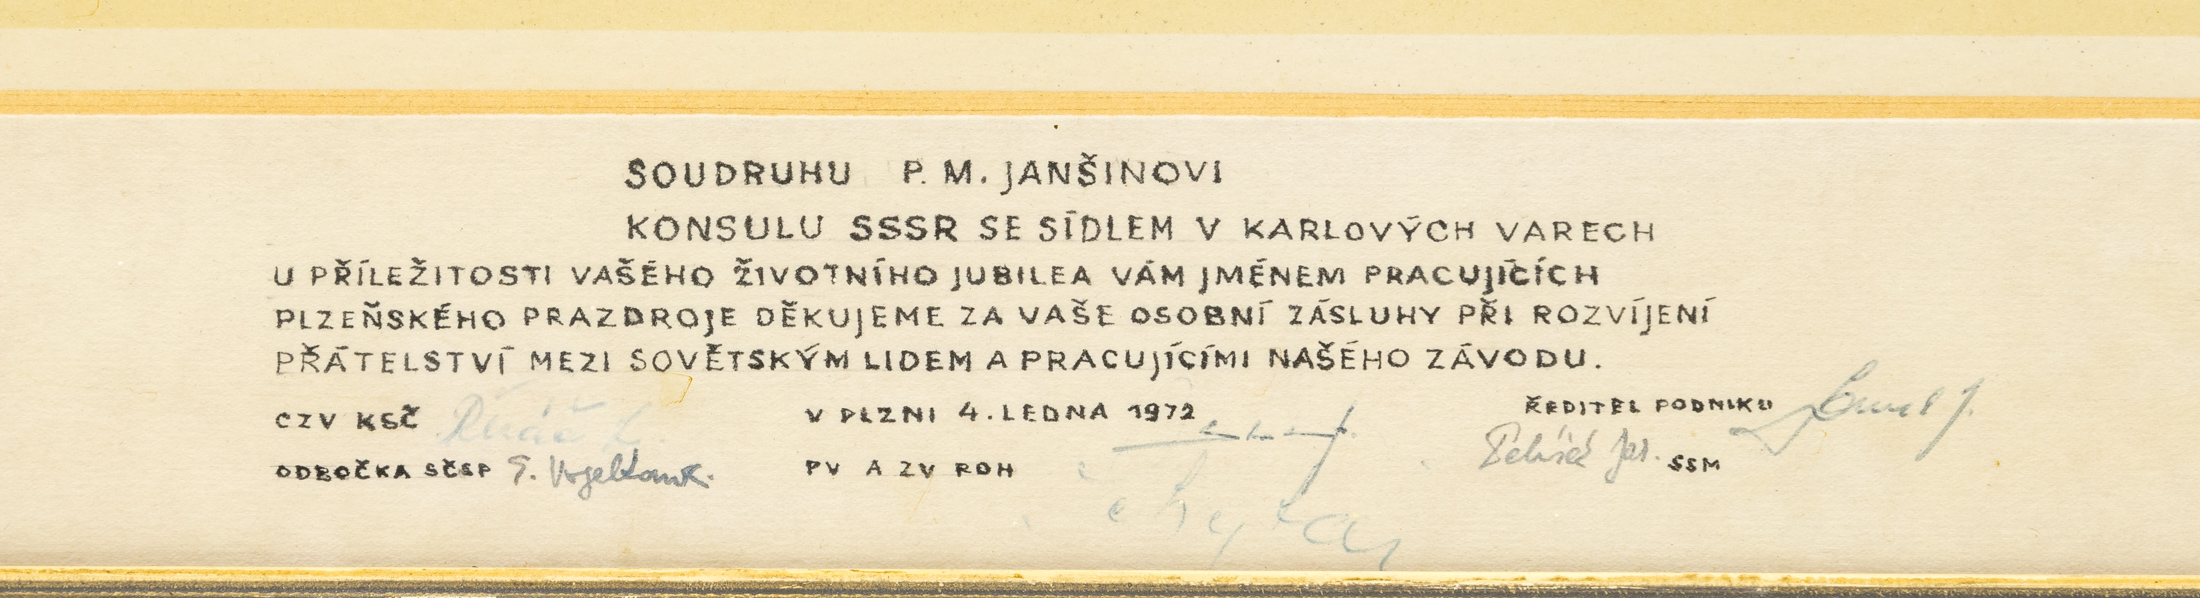 SOUDRUHU P. M. JANŠINOVI
KONSULU SSSR SE SÍDLEM V KARLOVÝCH VARECH
U PŘÍLEŽITOSTI VAŠÉHO ŽIVOTNÍHO JUBILEA VÁM JMÉNEM PRACUJÍCÍCH
PLZEŇSKÉHO PRAZDROJE DĚKUJEME ZA VAŠE OSOBNÍ ZÁSLUHY PŘI ROZVÍJENÍ
PŘÁTELSTVÍ MEZI SOVĚTSKÝM LIDEM A PRACUJÍCÍMI NAŠÉHO ZÁVODU.
CZV KSČ V PLZNI 4. LEDNA 1972 ŘEDITEL PODNIKU
ODBOČKA SČSP PV A ZV ROH SSM